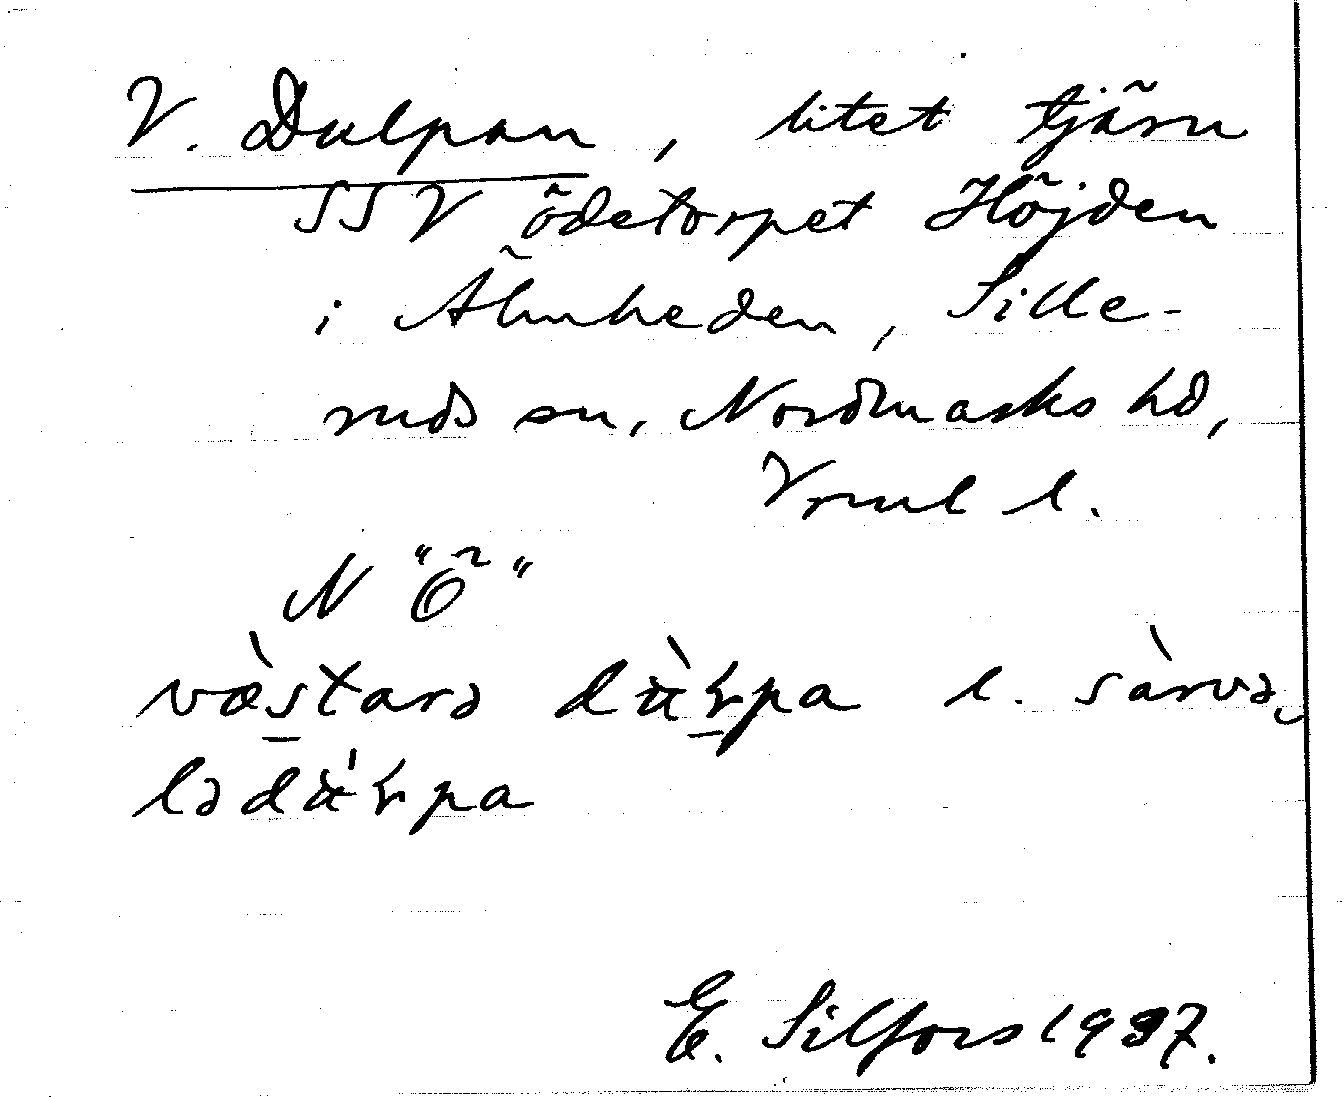 V. Dulpan, litet tjärn
SSV ödetorpet Höjden
i Älmheden, Sille-
ruds sn, Nordmarks hd,
Vrml l.
N "Ö"
væ̀starə dʉ̀ɽpa l. sàrvə
lədʉ̍ɽpa
E. Silfors 1937.